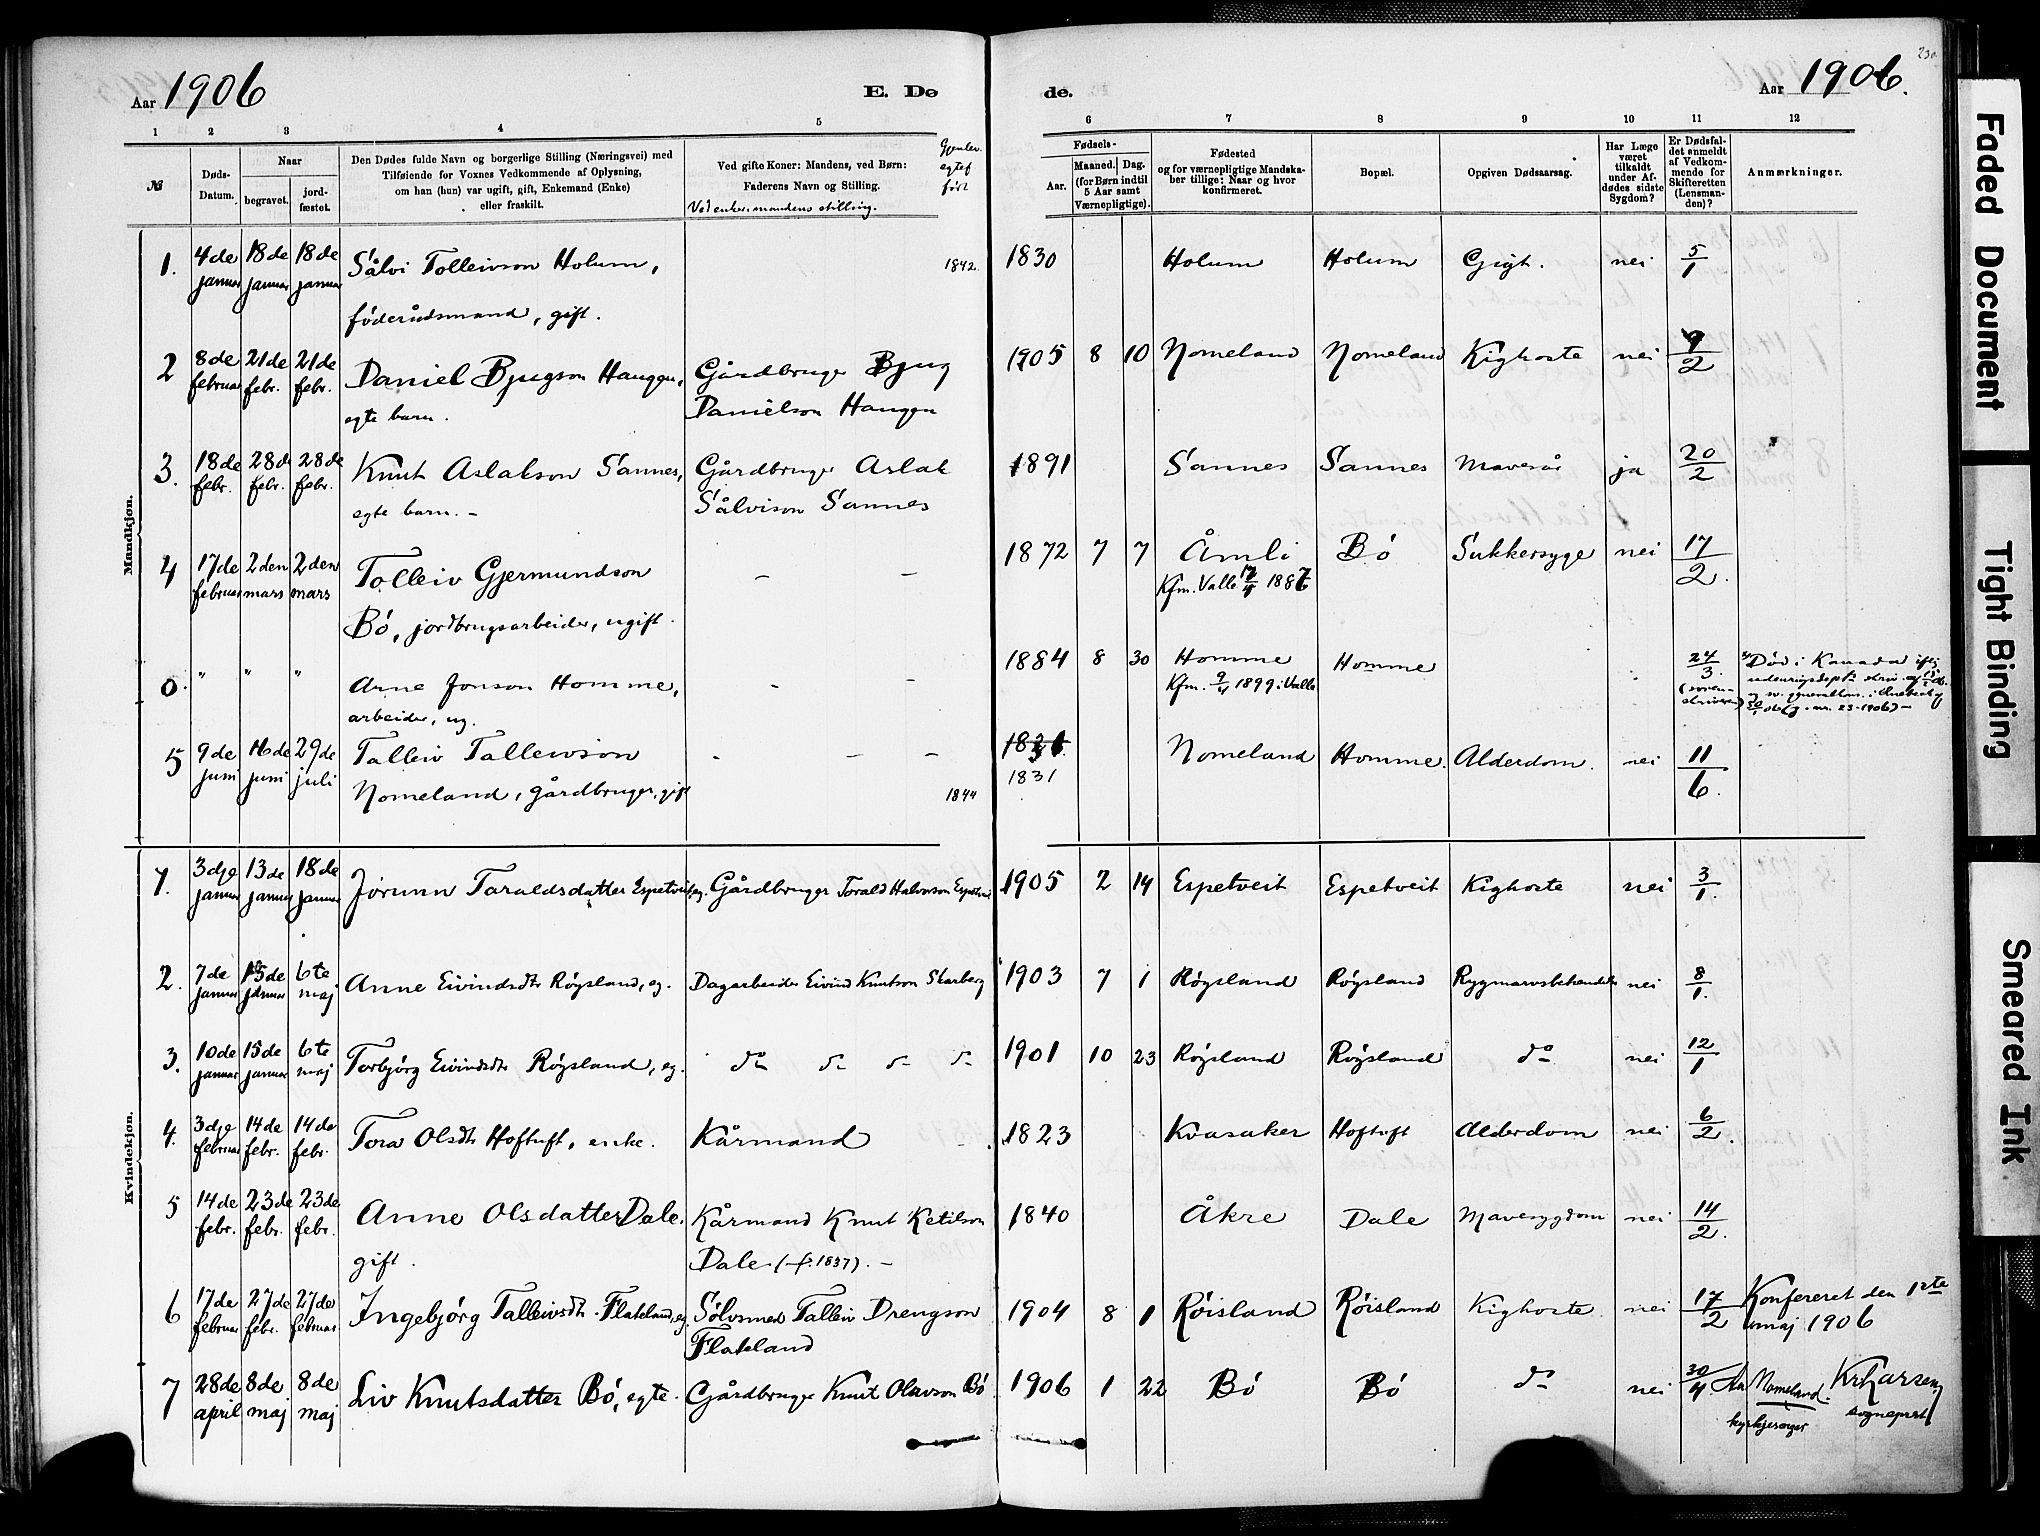 230
Aar 1906
E. Dø
de.
Aar 1906.
1 2 3 4 5 6 7 8 9 10 11 12
№
Døds-Datum.
Naar
begravet.
jord-fæstet.
Den Dødes fulde Navn og borgerlige Stilling (Næringsvei) med
Tilføiende for Voxnes Vedkommende af Oplysning,
om han (hun) var ugift, gift, Enkemand (Enke)
eller fraskilt.
Ved gifte Koner: Mandens, ved Børn:
Faderens Navn og Stilling.
Ved enker: mandens stilling.
Gjenlev. egtef. født
Fødsels-
Aar.
Maaned. Dag.
(for Børn indtil
5 Aar samt
Værnepligtige).
Fødested
og for værnepligtige Mandska-
ber tillige: Naar og hvor
konfirmeret.
Bopæl.
Opgiven Dødsaarsag.
Har Læge
været
tilkaldt
under Af-
dødes sidste
Sygdom?
Er Dødsfal-
det anmeldt
af Vedkom-
mende for
Skifteretten
(Lensman-
den)?
Anmærkninger.
Mandkjøn.
1. 4de januar 18de januar 18de januar Sålvi Tolleivson Holum, 1842. 1830 Holum Holum Gigt. nei 5/1
føderådsmand, gift.
2 8de februar 21de febr. 21de febr. Daniel Bjugson Haugen, Gårdbruger Bjug 1905 8 10 Nomeland Nomeland Kighoste nei 9/2
egte barn. Danielson Haugen
3. 18de febr. 28de febr. 28de febr. Knut Aslakson Sannes, Gårdbruger Aslak 1891 Sannes Sannes Mavesår ja 20/2
egte barn. - Sålvison Sannes
4 17de februar 2den mars 2den mars Tolleiv Gjermundson - - 1872 7 7 Åmli Bø Sukkersyge nei 17/2.
Bø, jordbrugsarbeider, ugift. Kfm. Valle
0. " " " Arne Jonson Homme, - - 1884 8 30 Homme Homme 24/3. Død i Kanada
arbeider, ug. Kfm. 9/4 1899 i Valle
5 9de juni 16de juni 29de juli Talleiv Talleivson - - - 1831 Nomeland Homme. Alderdom. nei 11/6.
Nomeland, gårdbruger, gift 1844
Kvindekjøn.
1. 3dje januar 13de januar 18de januar Jørunn Taraldsdatter Espetveit, eg. Gårdbruger Torald Halvorson Espetveit 1905 2 14 Espetveit Espetveit Kighoste nei 3/1.
2. 7de januar 15de januar 6te maj Anne Eivindsdtr Røysland, eg. Dagarbeider Eivind Knutson Skarberg 1903 7 1 Røysland Røysland nei 8/1.
3. 10de januar 15de januar 6te maj Torbjørg Eivindsdtr Røysland, eg. do 1901 10 23 Røysland Røysland do nei 12/1
4. 3dje februar 14de febr. 14de febr. Tora Olsdtr Hoftuft, enke. Kårmand 1823 Kvasaker Hoftuft Alderdom nei 6/2.
5 14de febr. 23de febr. 23de febr. Anne Olsdatter Dale, Kårmand Knut Ketilson 1840 Åkre Dale Mavesygdom nei 14/2.
gift. Dale (f. 1837). -
6 17de februar 27de febr. 27de februar Ingebjørg Talleivsdtr. Flateland, eg. Sølvsmed Talleiv Drengson 1904 8 1 Røisland Røisland Kighoste nei 17/2 Konfereret den 1ste maj 1906
Flateland
7 28de april 8de maj 8de maj Liv Knutsdatter Bø, egte. Gårdbruger Knut Olavson Bø 1906 1 22 Bø Bø do nei 30/4 Nomeland. Kr Larsen
kyrkjesanger sogneprest
Faded Document
Tight Binding
Smeared Ink